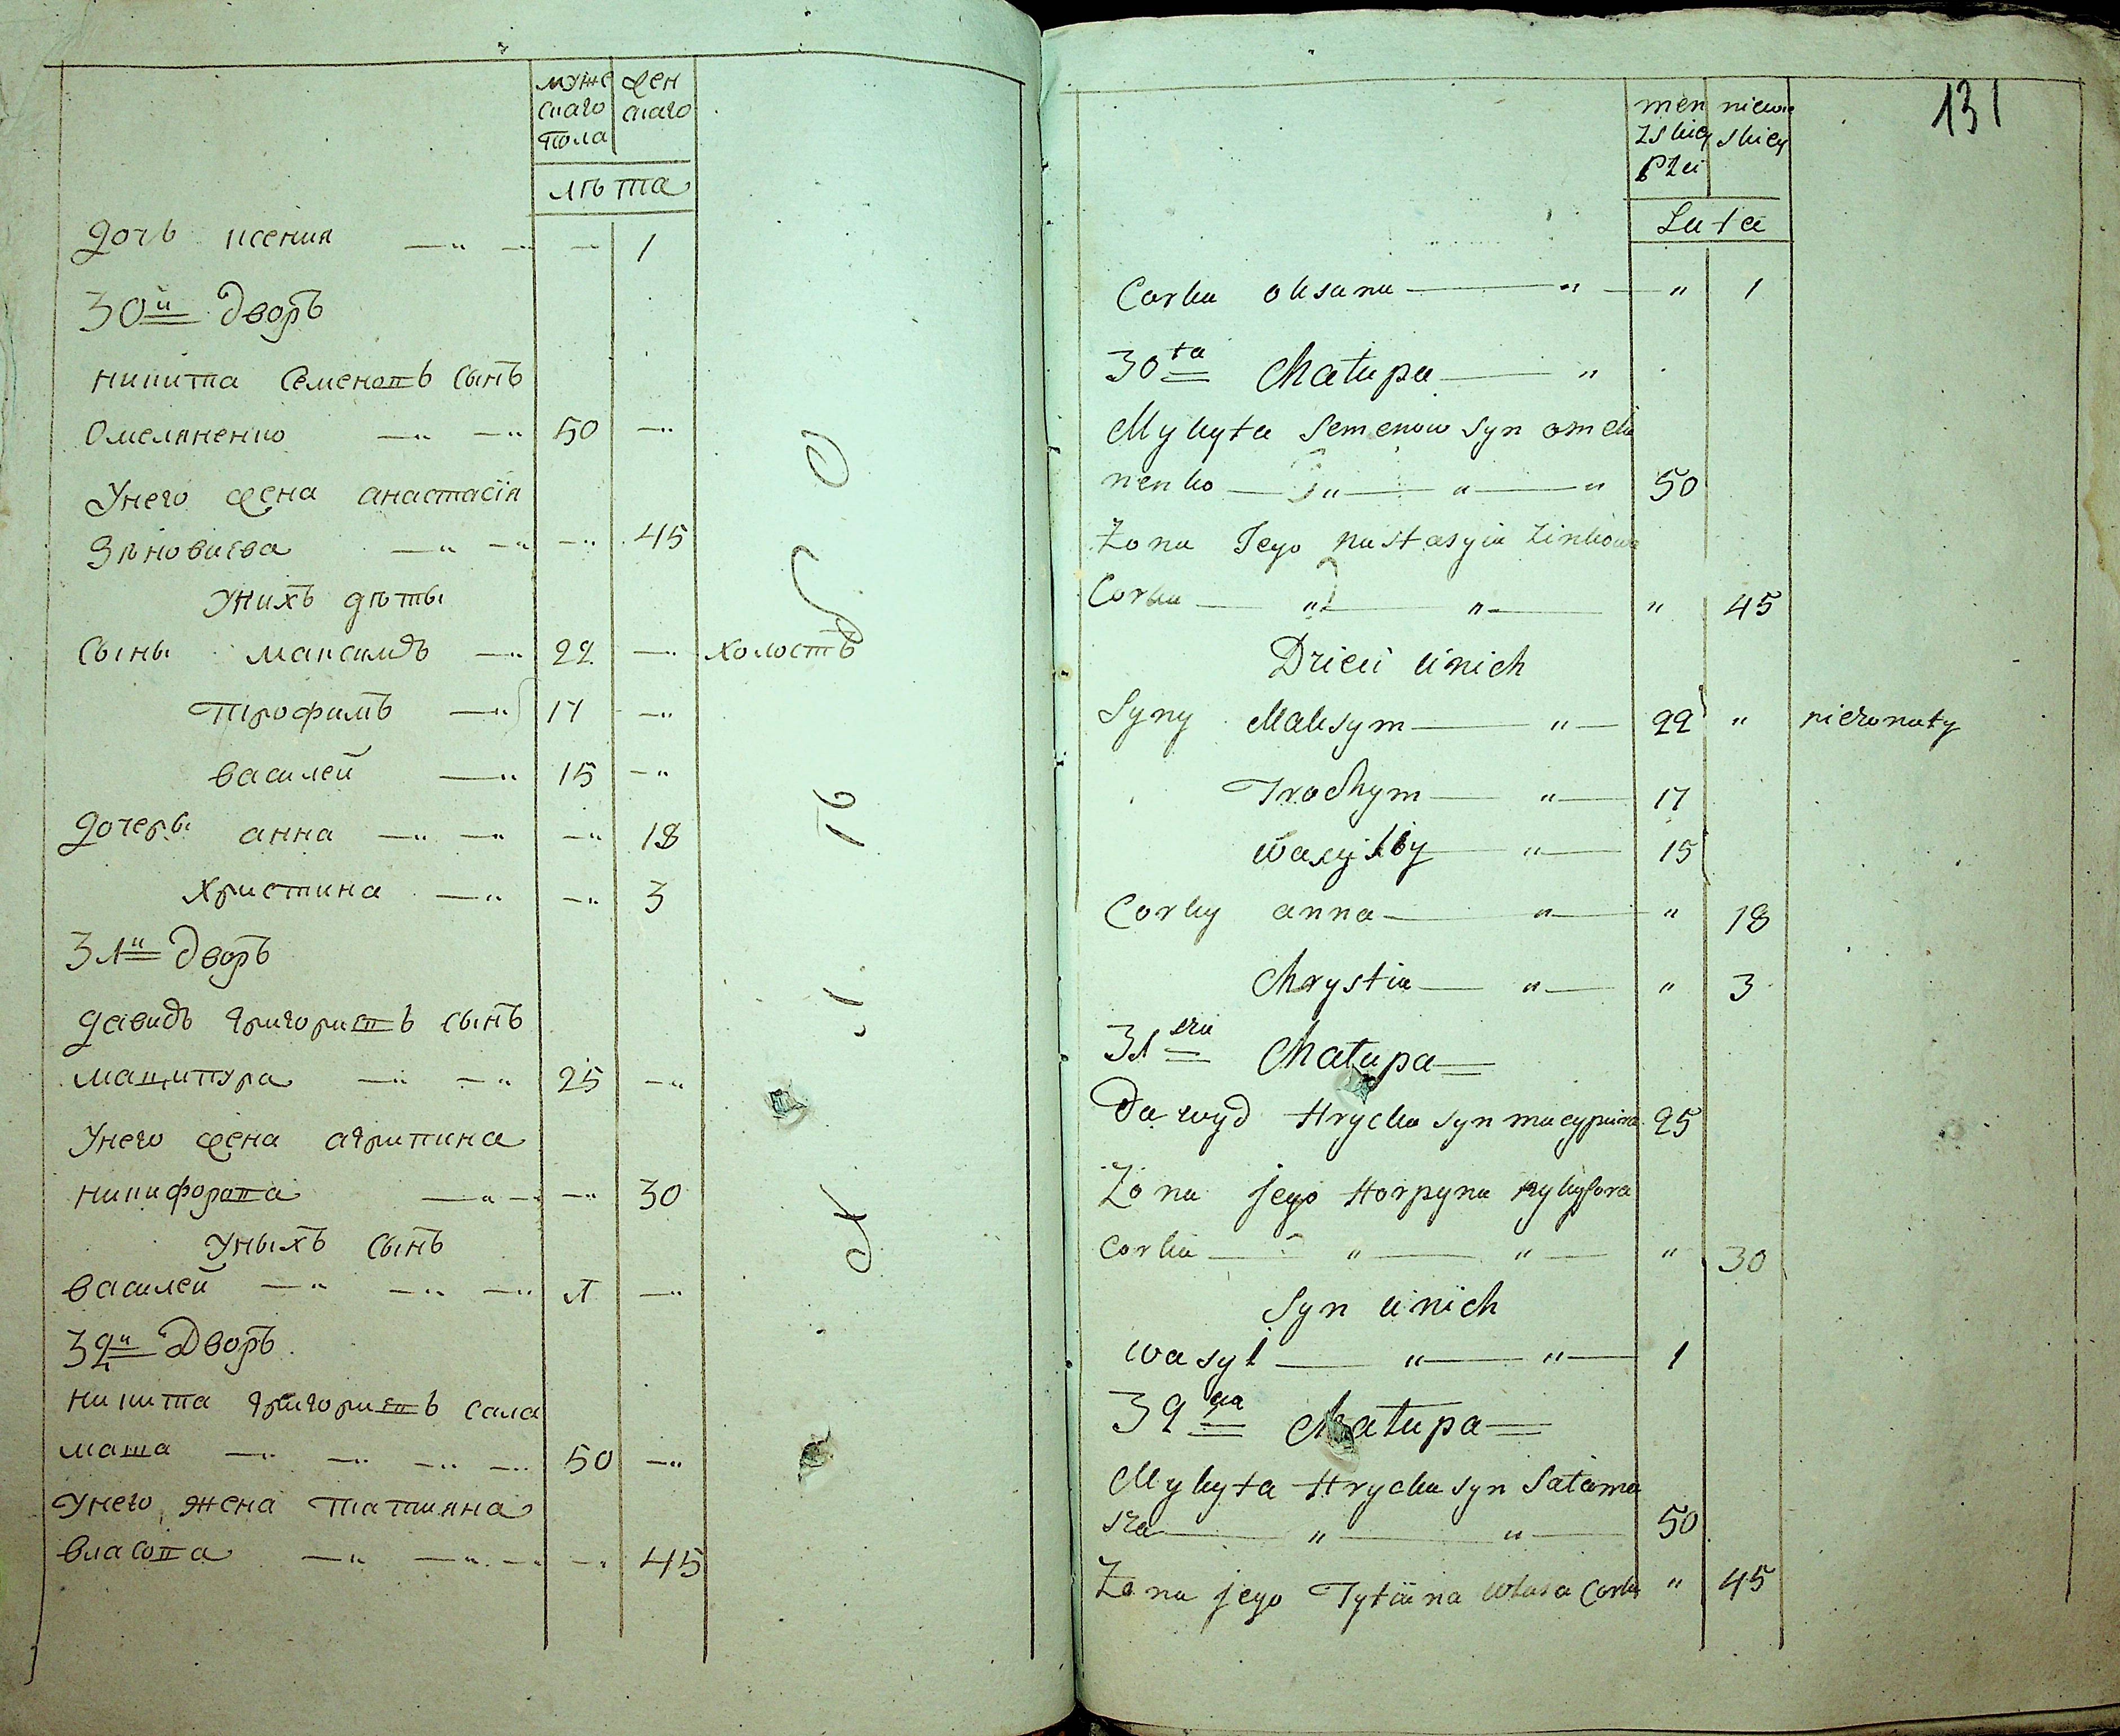 муже жен
скаго скаго
пола
лѣта
дочь ксения —„ — — 1
30й дворъ
никита Семеновъ сынъ
Омеляненко —„ —„ 50 —„
Унего жена анастасія
Зѣновиева —„ —„ —„ 45
Унихъ дѣты
Сыны максимъ —„ 22 —„ холостъ
трофимъ —„ 17 —„
василей —„ 15 —„
дочеры анна —„ —„ —„ 18
христина —„ —„ 3
31й дворъ
давидъ григориевъ сынъ
маципура —„ —„ 25 —„
Унего жена агрипина
никифорова —„ — —„ 30
Уныхъ сынъ
василей —„ —„ —„ 1 —„
32й Дворъ
никита григориевъ сала
маша —„ —„ —„ —„ 50 —„
Унего жена татияна
власова —„ —„ — —„ 45
131
men niewie
zskiey skiey
płci
Lata
Corka oksana — „ — „ 1
30ta Chałupa — „
Mykyta Semenow syn omelia
nenko — „ — „ — „ 50
Żona Jego nastasyia Zinkowa
Corka — „ — „ — „ 45
Dzieci u nich
Syny Maksym — „ — 22 „ nieżonaty
Trochym — „ — 17
Wasylkiy — „ — 15
Corky anna — „ — „ 18
Chrystia — „ — „ 3
31sza Chałupa
Dawyd Hrycka syn macypura 25
Żona jego Horpyna nykyfora
Corka — „ — „ — „ 30
Syn u nich
Wasyl — „ — „ — 1
32ga Chałupa
Mykyta Hrycka syn Sałama
sza — „ — „ — 50
Żona jego Tytiana Własa Corka „ 45